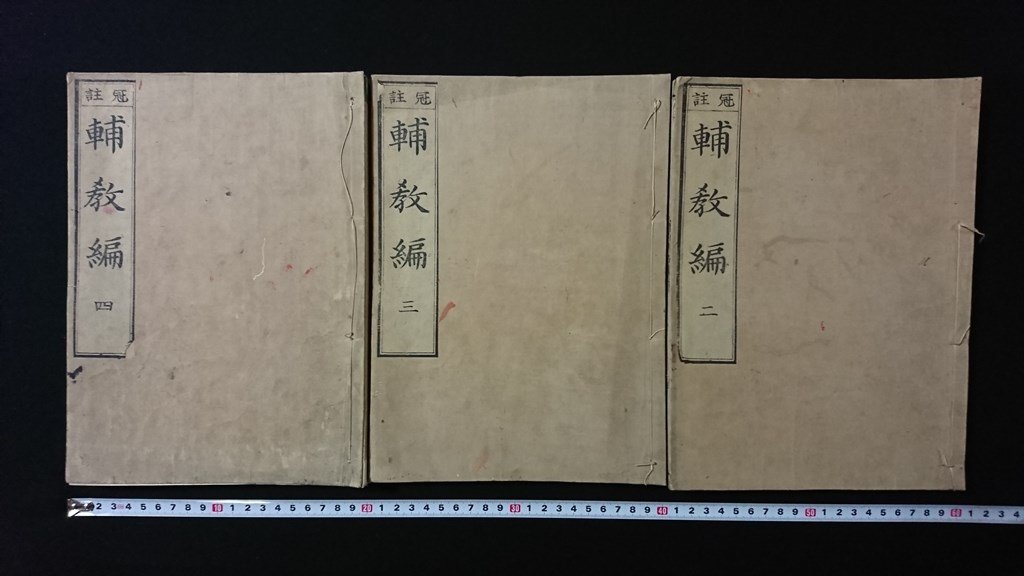 冠註
輔教編
二
冠註
輔教編
三
冠註
輔教編
四
2 3 4 5 6 7 8 9 10 1 2 3 4 5 6 7 8 9 20 1 2 3 4 5 6 7 8 9 30 1 2 3 4 5 6 7 8 9 40 1 2 3 4 5 6 7 8 9 50 1 2 3 4 5 6 7 8 9 60 1 2 3 4